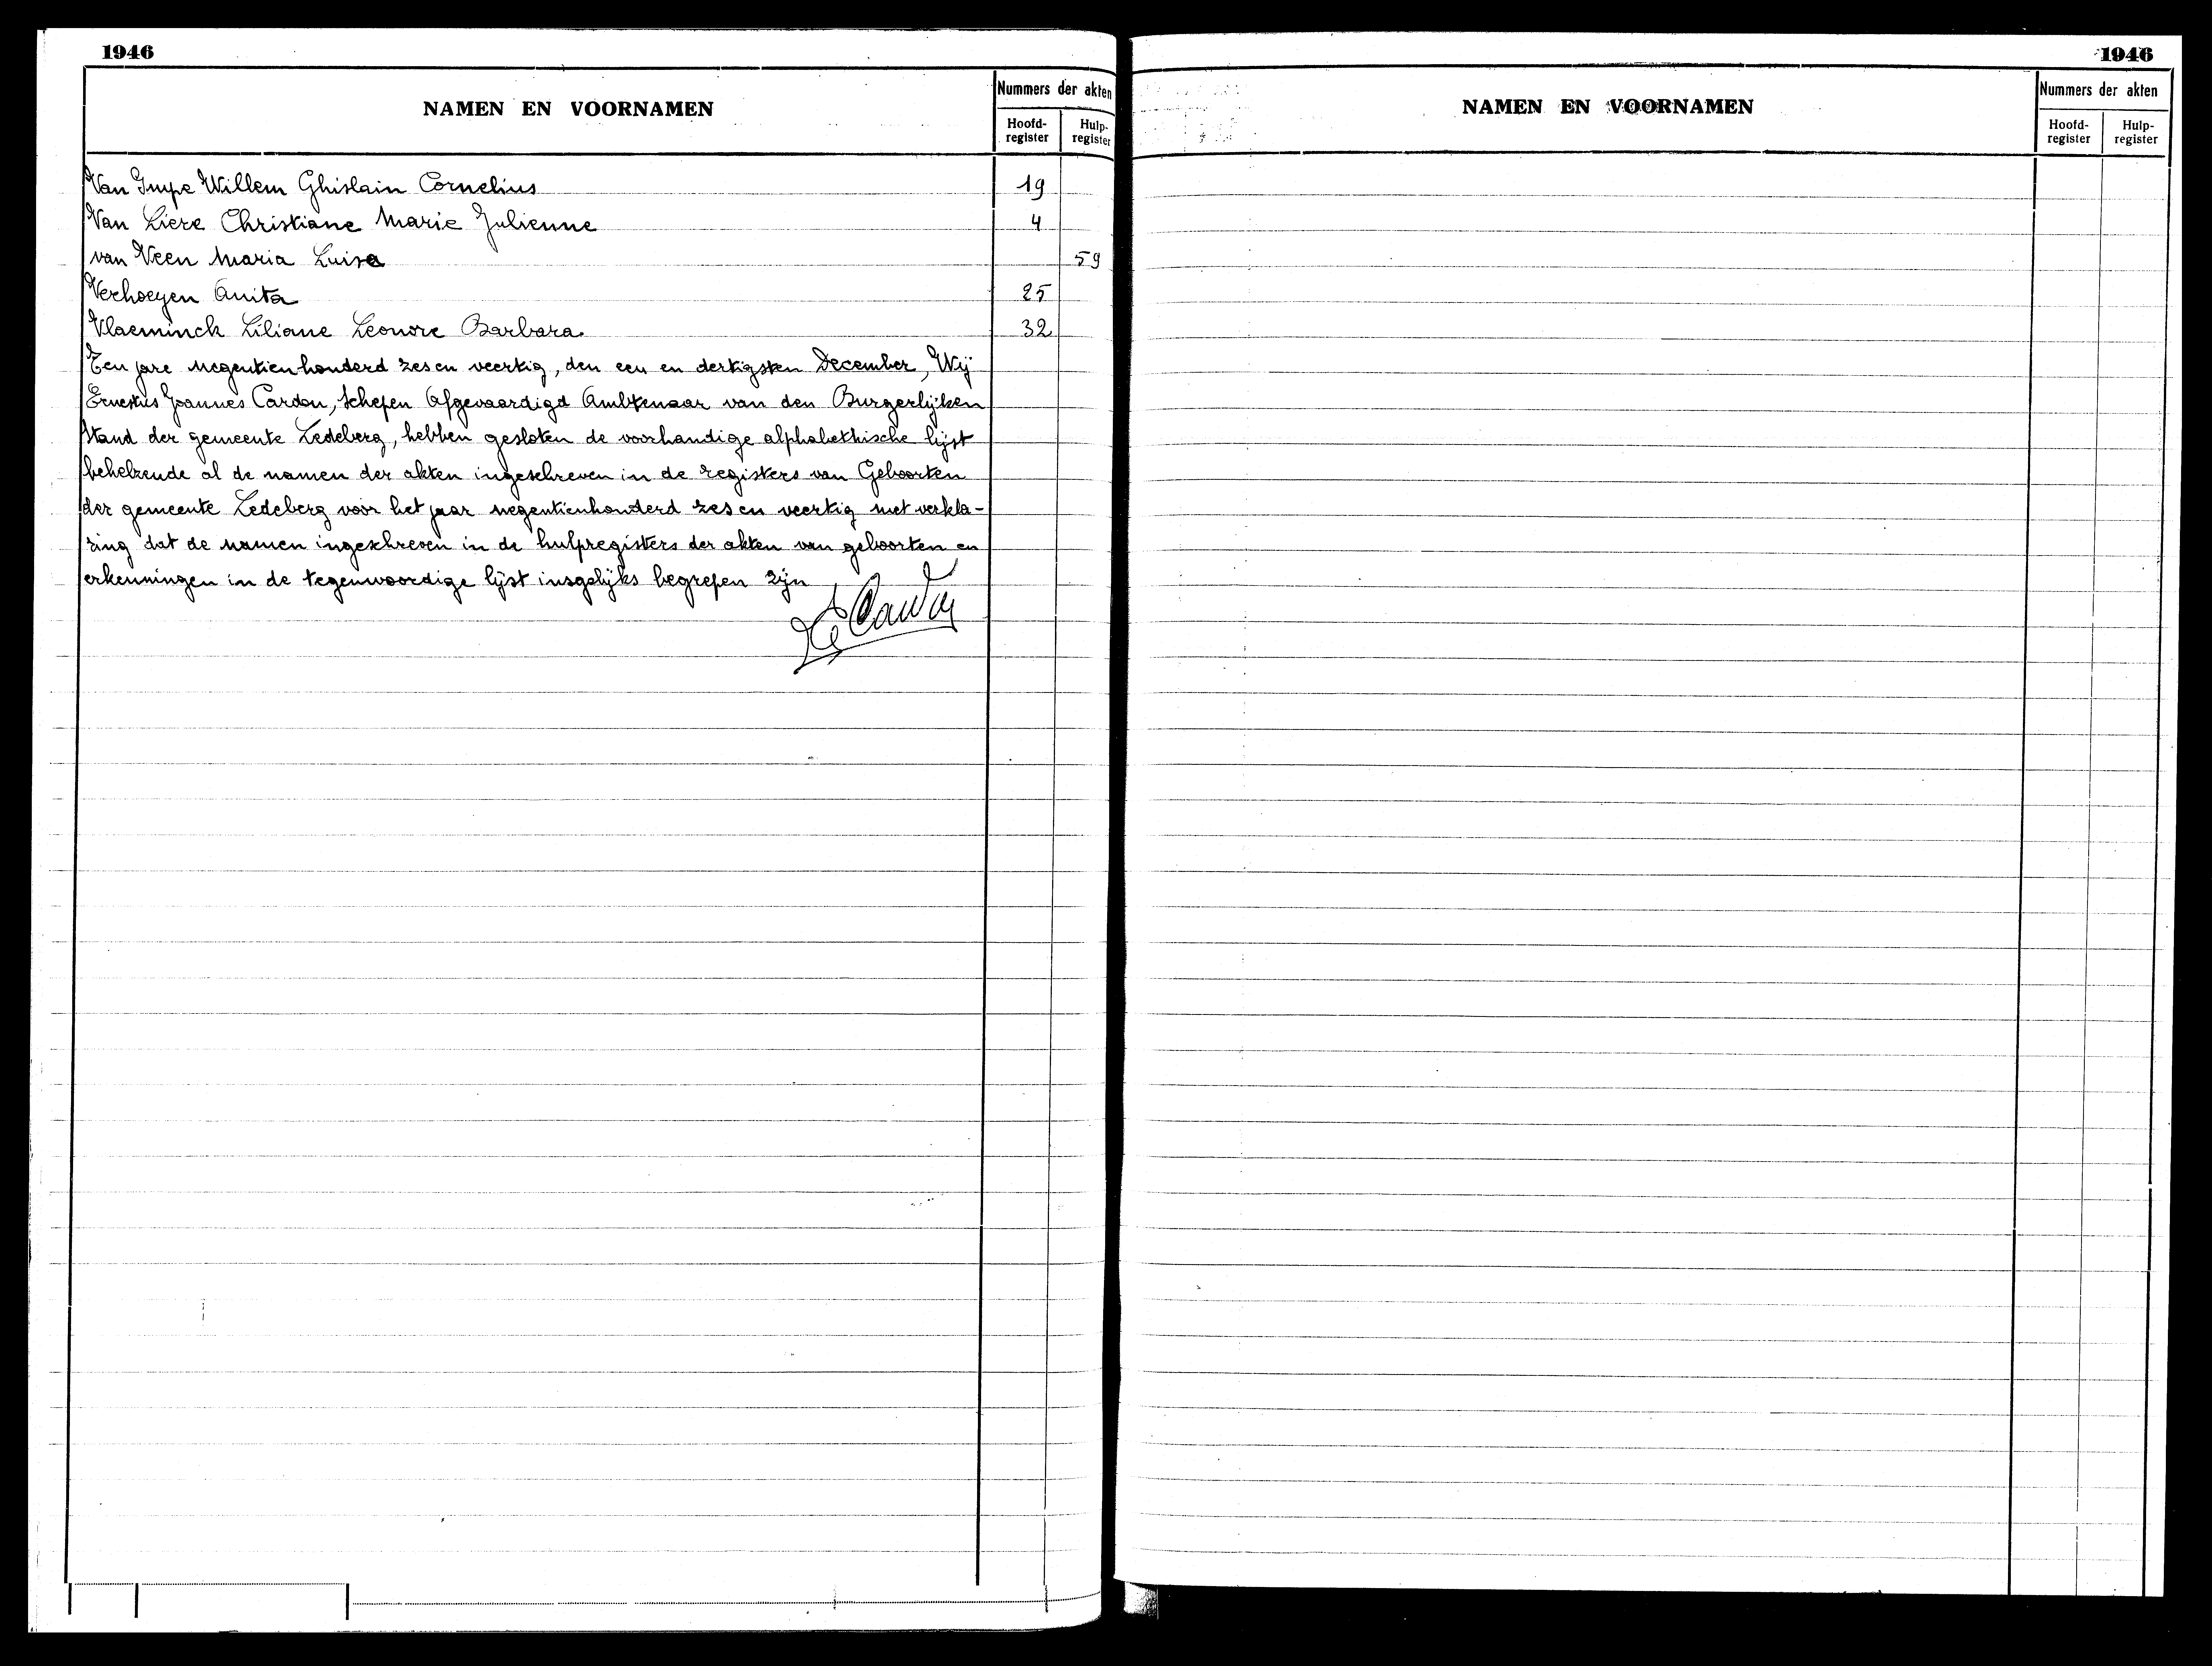 1946
NAMEN EN VOORNAMEN
Nummers der akten
Hoofd-
register
Hulp-
register
Van Impe Willem Ghislain Cornelius 19
Van Liere Christiane Marie Julienne 4
van Veen Maria Luisa 59
Verhoeyen Anita 25
Vlaeminck Liliane Leonore Barbara 32
Ten jare negentienhonderd zes en veertig, den een en dertigsten December, Wij
Ernestus Joannes Cardon, Schepen Afgevaardigd Ambtenaar van den Burgerlijken
Stand der gemeente Ledeberg, hebben gesloten de voorhandige alphabethische lijst
behelzende al de namen der akten ingeschreven in de registers van Geboorten
der gemeente Ledeberg voor het jaar negentienhonderd zes en veertig met verkla-
ring dat de namen ingeschreven in de hulpregisters der akten van geboorten en
erkenningen in de tegenwoordige lijst insgelijks begrepen zijn
1946
NAMEN EN VOORNAMEN
Nummers der akten
Hoofd-
register
Hulp-
register